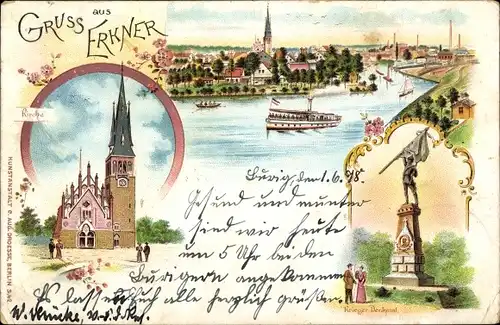 GRUSS aus
ERKNER
Kirche
Bürig, den 1. 6. 98.
Gesund und munter
sind wir heute
um 5 Uhr bei den
Bürigern angekommen
Es lassen alle herzlich grüßen
Krieger-Denkmal
KUNSTANSTALT v. AUG. DROESSE, BERLIN S.42